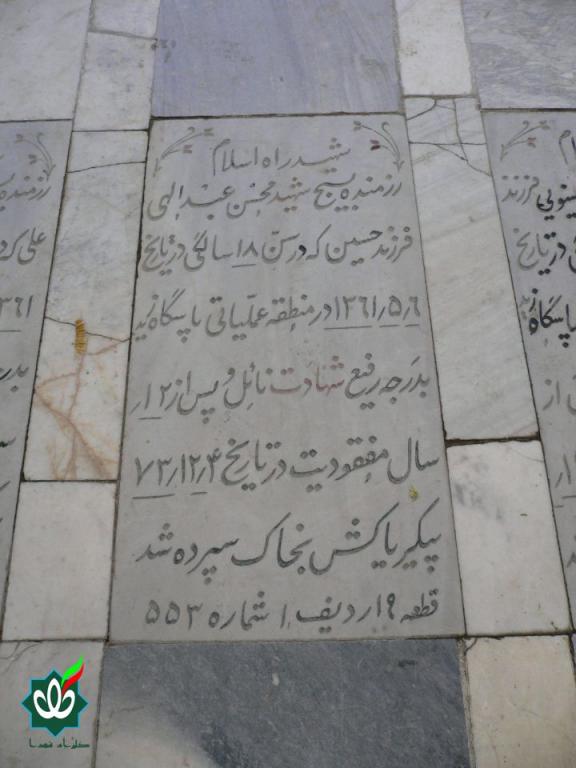 شهید راه اسلام
رزمنده بسیج شهید محسن عبدالهی
فرزند حسین که در سن ۱۸ سالگی در تاریخ
۱۳۶۱٫۵٫۶ در منطقه عملیاتی پاسگاه زید
بدرجه رفیع شهادت نائل و پس از ۱۲
سال مفقودیت در تاریخ ۷۳٫۱۲٫۴
پیکر پاکش بخاک سپرده شد
قطعه ۱۹ ردیف ۱ شماره ۵۵۳
رزمنده
علی که در
۳۶۱
بدرجه
فرزند
در تاریخ
پاسگاه زید
از
گلزار شهدا